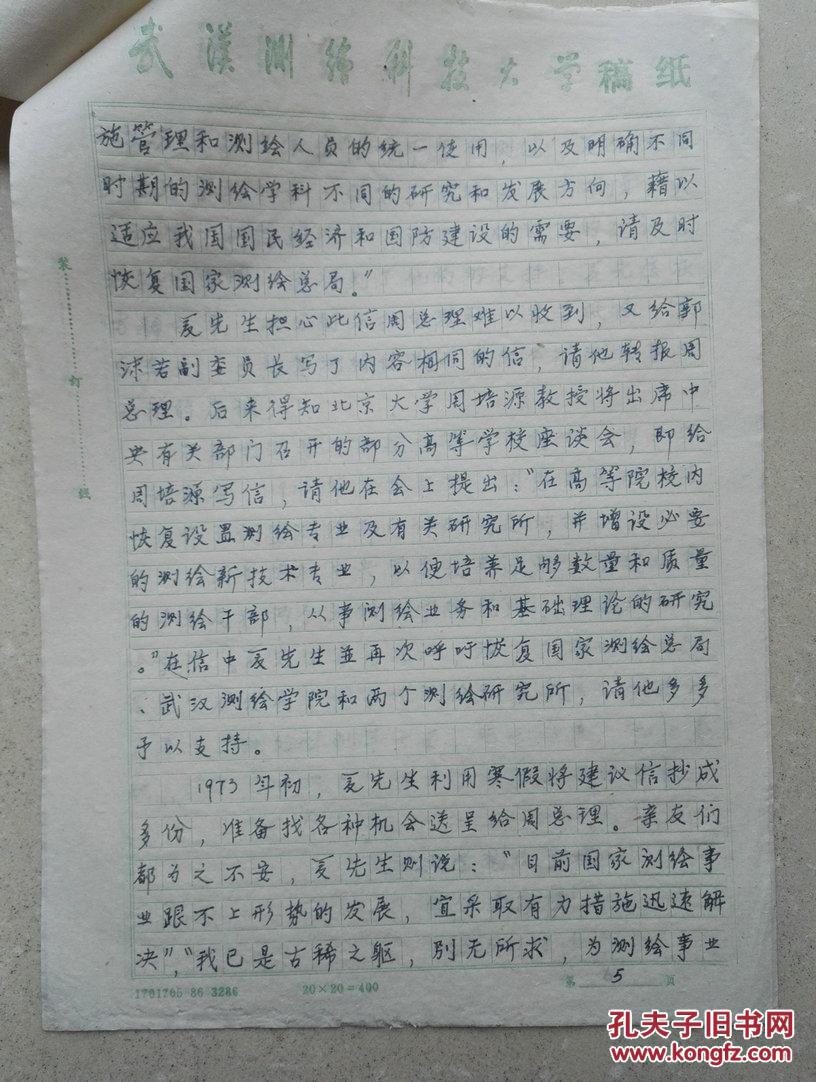 武汉测绘科技大学稿纸
施管理和测绘人员的统一使用，以及明确不同
时期的测绘学科不同的研究和发展方向，藉以
适应我国国民经济和国防建设的需要，请及时
恢复国家测绘总局。”
夏先生担心此信周总理难以收到，又给郭
沫若副委员长写了内容相同的信，请他转报周
总理。后来得知北京大学周培源教授将出席中
央有关部门召开的部分高等学校座谈会，即给
周培源写信，请他在会上提出：“在高等院校内
恢复设置测绘专业及有关研究所，并增设必要
的测绘新技术专业，以便培养足够数量和质量
的测绘干部，从事测绘业务和基础理论的研究
。”在信中夏先生並再次呼吁恢复国家测绘总局
、武汉测绘学院和两个测绘研究所，请他多多
予以支持。
1973年初，夏先生利用寒假将建议信抄成
多份，准备找各种机会送呈给周总理。亲友们
都为之不安，夏先生则说：“目前国家测绘事
业跟不上形势的发展，宜采取有力措施迅速解
决”，“我已是古稀之躯，别无所求，为测绘事业
装订线
1701705 86 3286 20×20=400 第 5 页
孔夫子旧书网
www.kongfz.com